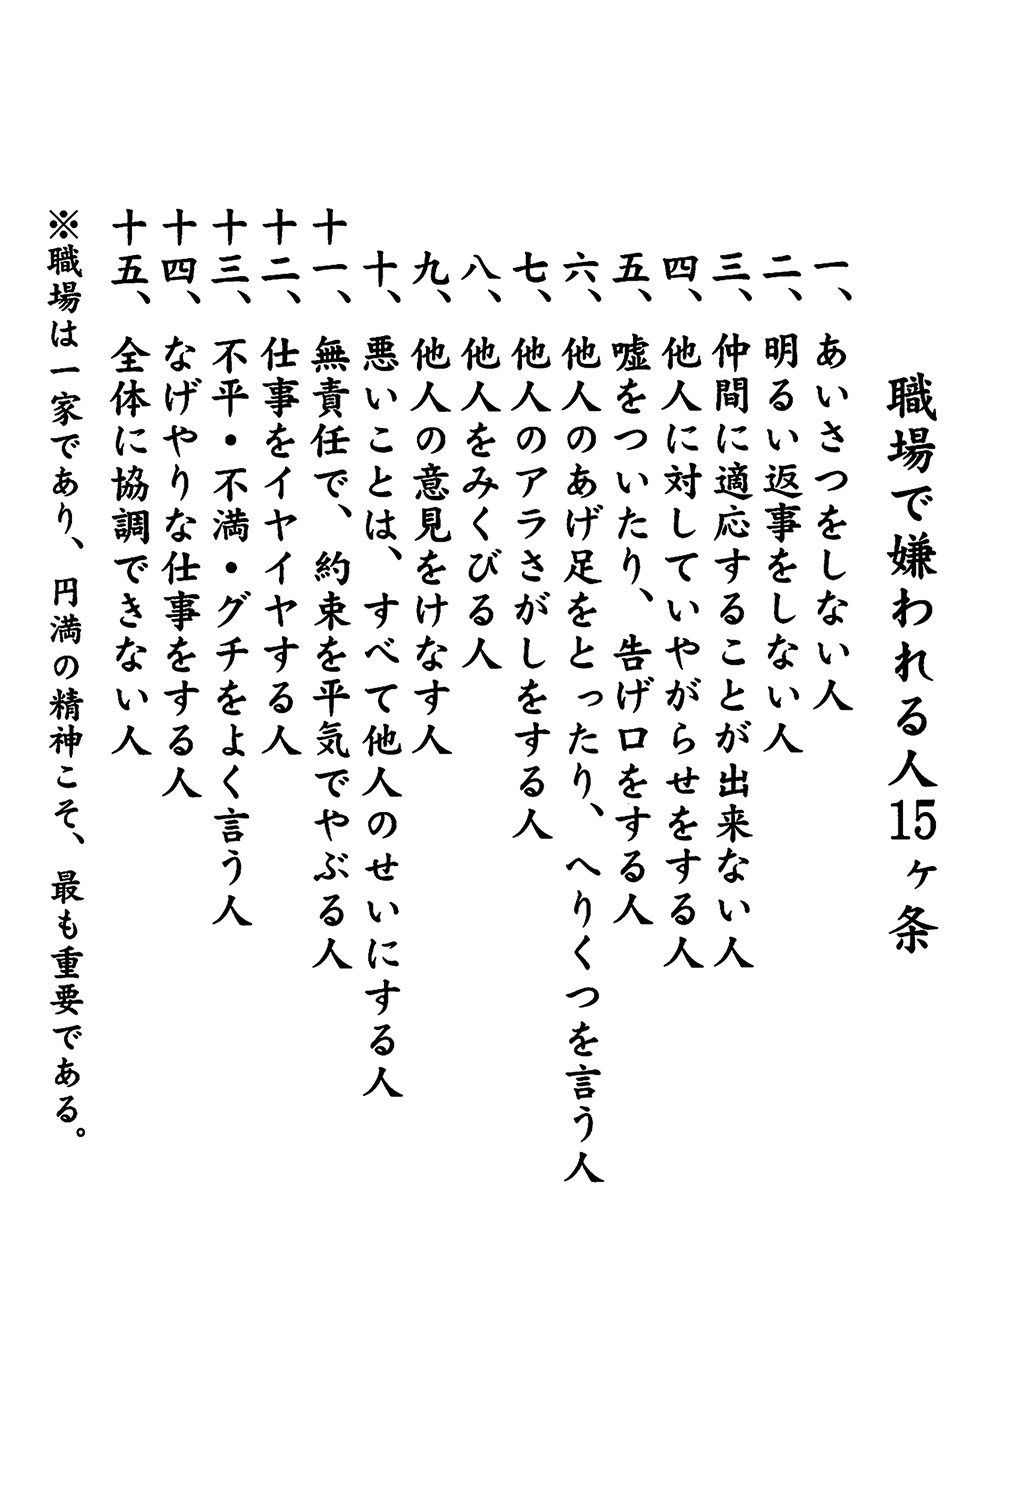 職場で嫌われる人15ヶ条
一、あいさつをしない人
二、明るい返事をしない人
三、仲間に適応することが出来ない人
四、他人に対していやがらせをする人
五、嘘をついたり、告げ口をする人
六、他人のあげ足をとったり、へりくつを言う人
七、他人のアラさがしをする人
八、他人をみくびる人
九、他人の意見をけなす人
十、悪いことは、すべて他人のせいにする人
十一、無責任で、約束を平気でやぶる人
十二、仕事をイヤイヤする人
十三、不平・不満・グチをよく言う人
十四、なげやりな仕事をする人
十五、全体に協調できない人
※職場は一家であり、円満の精神こそ、最も重要である。